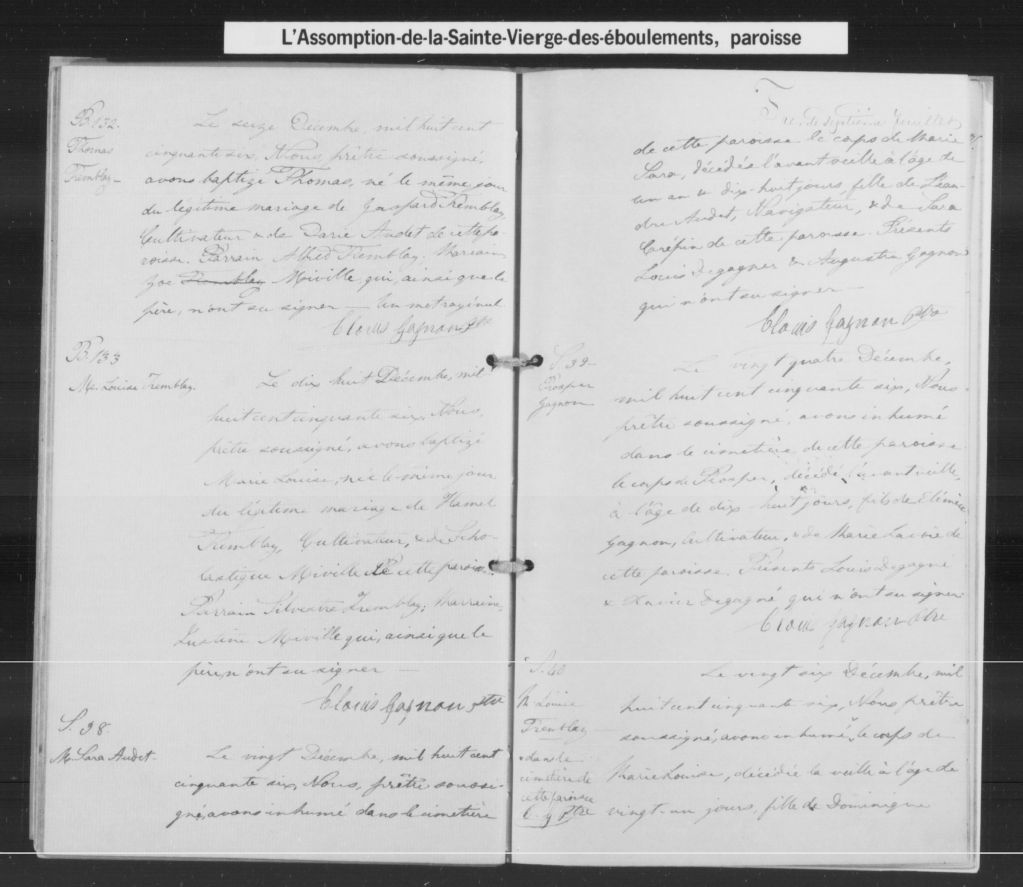 L'Assomption-de-la-Sainte-Vierge-des-éboulements, paroisse
B. 132.
Thomas
Tremblay
Le seize Décembre, mil huit cent
cinquante six, Nous, prêtre soussigné,
avons baptizé Thomas, né le même jour
du légitime mariage de Gaspard Tremblay,
Cultivateur & de Darie Audet de cette pa-
roisse. Parrain Alfred Tremblay. Marraine
Zoé Tremblay Miville qui, ainsi que le
père, n'ont su signer — Un mot rayé nul
Clovis Gagnon Ptre
B. 133
Me. Louise Tremblay.
Le dix huit Décembre, mil
huit cent cinquante six, Nous,
prêtre soussigné, avons baptizé
Marie Louise, née le même jour
du légitime mariage de Hamel
Tremblay, Cultivateur, & de Scho-
lastique Miville de cette paroisse.
Parrain Silvestre Tremblay; Marraine
Miville qui, ainsi que le
père, n'ont su signer —
Clovis Gagnon Ptre
S. 38.
M. Sara Audet.
Le vingt Décembre, mil huit cent
cinquante six, Nous, prêtre soussi-
gné, avons inhumé dans le cimetière
septième feuillet
de cette paroisse le corps de Marie
Sara, décédée l'avant veille à l'âge de
un an & dix-huit jours, fille de Léan-
dre Audet, Navigateur, & de Sara
Crépin de cette paroisse. Présents
Louis Degagner & Augustin Gagnon
qui n'ont su signer —
Clovis Gagnon Ptre
S. 39
Prosper
Gagnon
Le vingt quatre Décembre,
mil huit cent cinquante six, Nous
prêtre soussigné, avons inhumé
dans le cimetière de cette paroisse
le corps de Prosper, décédé l'avant veille,
à l'âge de dix-huit jours, fils de
Gagnon, Cultivateur, & de Marie de
cette paroisse. Présents Louis Degagné
& Xavier Degagné qui n'ont su signer
Clovis Gagnon Ptre
S. 40
M. Louise
Tremblay
& dans le
cimetière de
cette paroisse
C. G. Ptre
Le vingt six Décembre, mil
huit cent cinquante six, Nous, prêtre
soussigné, avons inhumé, le corps de
Marie Louise, décédée la veille à l'âge de
vingt-un jours, fille de Dominique